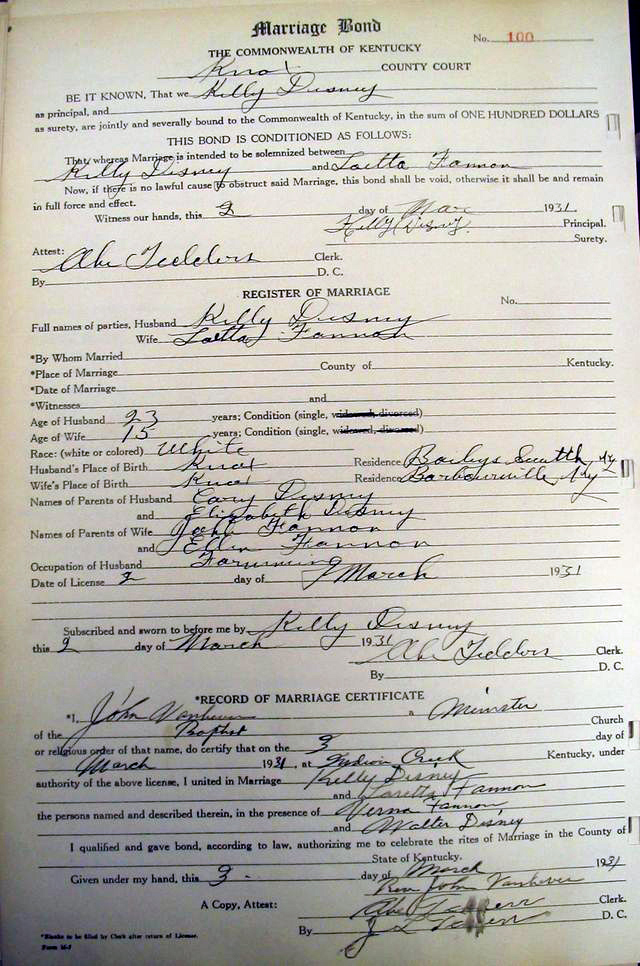 Marriage Bond
No. 100
THE COMMONWEALTH OF KENTUCKY
Knox COUNTY COURT
BE IT KNOWN, That we Kelly Disney
as principal, and
as surety, are jointly and severally bound to the Commonwealth of Kentucky, in the sum of ONE HUNDRED DOLLARS
THIS BOND IS CONDITIONED AS FOLLOWS:
That, whereas Marriage is intended to be solemnized between
Kelly Disney and Loetta Fannon
Now, if there is no lawful cause to obstruct said Marriage, this bond shall be void, otherwise it shall be and remain
in full force and effect.
Witness our hands, this 2 day of Mar 1931.
Kelly Disney. Principal.
Surety.
Attest:
Abe Fedders Clerk.
By D. C.
REGISTER OF MARRIAGE
No.
Full names of parties, Husband Kelly Disney
Wife Loetta Fannon
*By Whom Married
*Place of Marriage County of Kentucky.
*Date of Marriage
*Witnesses and
Age of Husband 23 years; Condition (single, widowed, divorced)
Age of Wife 15 years; Condition (single, widowed, divorced)
Race: (white or colored) White
Husband's Place of Birth Knox Residence Baileys Ky
Wife's Place of Birth Knox Residence Barbourville Ky
Names of Parents of Husband Cary Disney
and Elizabeth Disney
Names of Parents of Wife John Fannon
and Ellen Fannon
Occupation of Husband Farming
Date of License 2 day of March 1931
Subscribed and sworn to before me by Kelly Disney
this 2 day of March 1931
Abe Fedders Clerk.
By D. C.
*RECORD OF MARRIAGE CERTIFICATE
*I, John Vanhever a Minister Church
of the Baptist
or religious order of that name, do certify that on the 3 day of
March 1931, at Indian Creek Kentucky, under
authority of the above license, I united in Marriage Kelly Disney
and Loretta Fannon
the persons named and described therein, in the presence of Verna Fannon,
and Walter Disney
I qualified and gave bond, according to law, authorizing me to celebrate the rites of Marriage in the County of
State of Kentucky.
Given under my hand, this 3 day of March 1931
Rev John Vanhever
A Copy, Attest: Clerk.
By D. C.
*Blanks to be filed by Clerk after return of License.